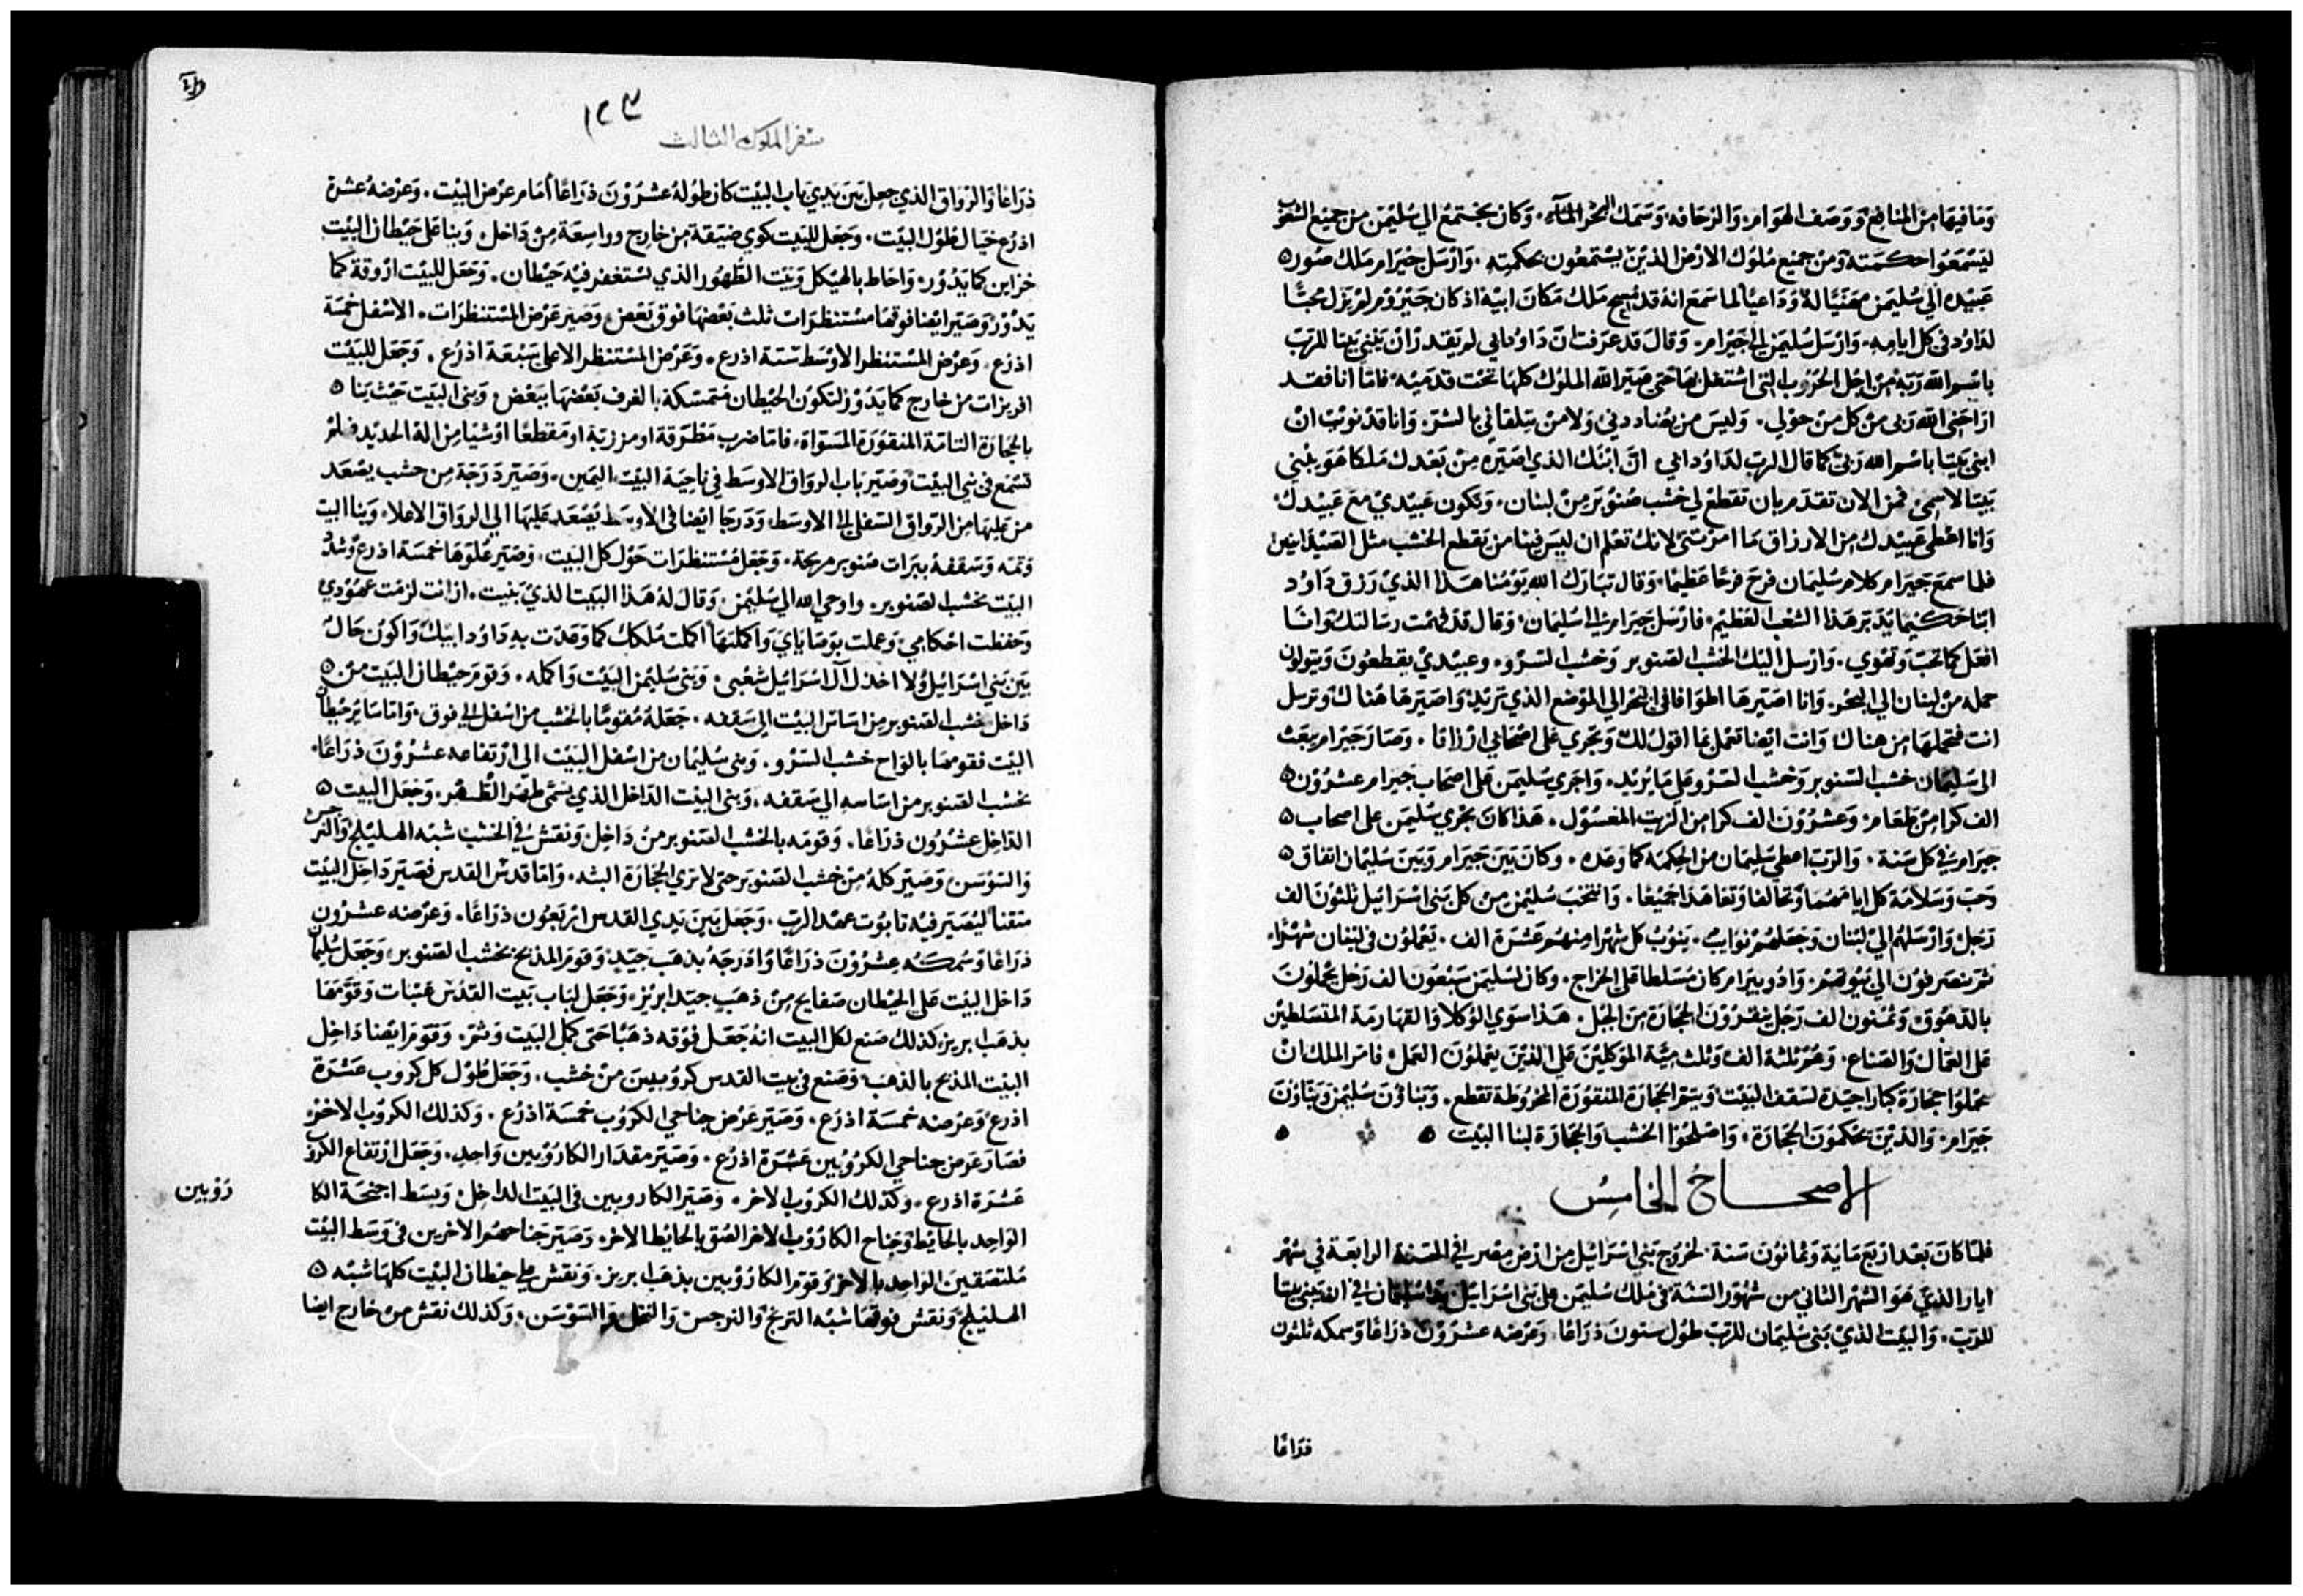 وَمَا فيهَا مِنَ المنَافِع وَوَصَف الهوَام وَالزحَافه وَسَمَك البحْر وَالمآء. وَكانَ يجتمعُ الي سُليمَن من جميع الشعُوب
ليَسْمَعوُا حكمَته وَمنْ جميْع مُلوُك الارْض الذيْن يسْتمعُون بحكمتِهِ. وَارْسَل حِيْرَام مَلك صُوُر
عَبيْده الي سُليمَن مهَنيًا لهُ وَدَاعيًا لما سَمعَ انهُ قد مُسِح مَلك مَكان ابيْه اذ كان حَيْرُوم لم يزَل محبًّا
لدَاوُد في كل ايامِه. وَارْسَل سُليمَن الي حَيْرَام. وَقالَ قد عَرَفت انّ دَاوُد ابي لم يقدرْ انْ يَبْني بَيتا للرَبّ
باسْم الله رَبّه مِنْ اجْل الحرُوب التي اشتغل بهَا حَتى صَيّرَ الله الملوُك كلهَا تحْت قدَميْه فامّا انا فقد
ارَاحَني الله رَبي منْ كل منْ حوْلي. وَليسَ من يُضاددني وَلا منْ يتلقاني بالشرّ. وَانا قدْ نوَيْت انْ
ابني بَيْتا باسْم الله رَبيّ كما قالَ الربّ لدَاوُد ابي انّ ابْنك الذي اصَيّره مِنْ بَعْدك مَلكا هُوَ يبْني
بَيتا لاسمي. فمن الان تقدّم بان تقطعْ لي خشب صُنوُبَر مِنْ لبنان. وَتكون عَبيْدي معَ عَبيْدك
وَانا اعْطي عَبيْدك مِن الارزاق مَا امَرْتني لانكَ تعْلم ان ليسَ فينا من يَقطع الخشب مثل الصَيْدَانيين
فلما سمعَ حَيرَام كلام سُليمَان فرحَ فرحًا عَظيمًا. وَقال تبَارَك الله يَوْمُنا هَذا الذيْ رَزقَ دَاوُد
ابنا حَكيْما يَدَبّر هَذا الشعْب العَظيْم. فارْسَل حَيرَام الي سُليمَان. وَقال قد فهمْت رسَالتك وَانا
افعَل كما تحبّ وَتهْوي. وَارْسل اليْك الخشب الصَنوبر وَخشب السّرْو. وعبيْديْ يقطعُونَ وَيتولون
حمله من لبنان الي البحْر. وَانا اصَيّرهَا اطوَافا في البحْر الي الموْضع الذي تريْد وَاصَيّرهَا هُناك وترسل
انت فتحملهَا من هناك وَانت ايْضا تعْمَل بمَا اقول لك وَتجْري عَلي اصْحَابي ارْزاقا. وَصَارَ حَيْرَام يبعَث
الي سَليمَان خشب السّنوبر وَخشب السّرْو علي مَا يُريْد. وَاجرَي سُليمَن عَلي اصحَاب حَيرام عشرُوْن
الف كرا منْ طعَام وَعشرُوْن الف كرا من الزيت المغسُوُل. هَذا كانَ يجْري سُليمَن على اصحاب
حيرَام في كل سَنة. وَالربّ اعطي سُليمَان من الحِكمه كما وعَده. وكان بَيْن حَيْرَام وَبَيْنَ سُليمَان اتفاق
وَحبّ وَسَلامَة كل ايامَهُمَا وَتحالفا وَتعَاهَدَا جميْعا. وَانتخبَ سُليمَن منْ كل بَني اسْرَائيل ثلثوُنَ الف
رَجل وَارْسَلهُم الي لبْنان وَجعَلهُم نوَايبْ. يَنوُبْ كل شهْر مِنهُم عَشرَة الف. يَعْملوُن في لبْنان شهْرًا
ثمّ ينصَرفوُنْ الي بُيُوتهُمْ. وَادُونيرَام كان مُسَلطا عَلي الخرَاج. وكان لسُليمَن سَبْعُون الف رَجُل يحْملونَ
بالدهُوْق وَثمنون الف رَجل ينقرُوْنَ الحجَارَة مِنَ الجبَل. هَذا سوَي الوُكلا وَالقهَارمَة المتسَلطين
عَلي العمَّال وَالصّناع. وَهُمْ ثلثة الف وَثلث ميَّة الموَكليْن عَلي الذيْن يعملوُنَ العَمل. فامَر الملك انْ
يحمَلوُا حجَارَة كبارَا جيّدة لسَقف البَيْت وَيَبنوا الحجَارَة المنقوُرَة المخرُوطة تقطع. وَبَناؤن سُليمَن وَبَنّاؤنَ
حَيرَام. وَالذيْنَ يحَكموُنَ الحجَارَة. وَاصْلحُوُا الخشب وَالحجَارَة لبنا البَيْت
الاصحَاحُ الخامِسُ
فلمّا كان بَعْد ارْبَع مَاية وَثمانوُنَ سَنة لخرُوْج بَني اسْرَائيْل من ارْض مصر في السّنة الرابَعة في شهْر
ايار الذيْ هوَ الشهْر الثاني من شهُوْر السّنة في مُلك سُليمَن علي بَني اسْرَائيْل بدا سُليمَان في ان يَبْني بَيتا
للرَبّ. وَالبيْت الذيْ بَني سُليمَان للرَبّ طوُل ستون ذرَاعًا وَعرْضه عشرُوْن ذرَاعًا وَسمكه ثلثون
ذرَاعًا
١٢٣
سفر الملوك الثالث
ذرَاعًا وَالرُوَاق الذي جعل بَين يدي باب البيْت كان طوُله عشرُوْن ذرَاعًا أمَام عرْض البيْت. وَعرْضهُ عشرة
اذرُع حيَال طوُل البيْت. وَجعَل للبَيت كوي ضيّقة منْ خارج وواسِعَة مِنْ دَاخل. وَبنا عَلي حيْطان البيْت
خزاين كما يَدُوْر. وَاحَاط بالهيْكل وَبيْت الطُهُور الذي يسْتغفر فيْه حَيْطان. وَجَعَل للبيْت ارْوقة كما
يَدُوْر وَصَيّر ايضا فوقهَا مسْتنظرَات ثلث بَعْضهَا فوْق بَعْض. وَصَيّر عَرْض المسْتنظرَات. الاسْفل خمْسَة
اذرُع. وَعرْض المسْتنظر الأوْسَط ستّة اذرع. وَعَرْض المسْتنظر الاعلي سَبْعَة اذرُع. وَجَعَل للبَيْت
افريزات من خارج كما يَدُوْر لتكوُن الحيْطان مُتمسّكة بالغرف بَعْضهَا ببَعْض. وَبَني البَيْت حَيْث بنا
بالحجَارَة التامّة المنقوُرَة المسَوّاة. فامّا ضرب مَطْرَقة او مرْزبّة او مقطعًا اوْ شيَا مِن الة الحديْد فلمْ
تسْمَع في بَني البيْت وَصَيّر بَاب الروَاق الاوسَط في ناحيَة البيْت اليَمين. وَصَيّر دَرَجَة من خشب يصْعَد
من عَليهَا مِن الرّواق السّفلي الي الاوسَط وَدَرجا ايضا في الاوسَط يصْعَد عَليهَا الي الروَاق الاعلاء وَبنا البيت
وَتمّه وَسَقفهُ ببرَات صُنوبر مربجة. وَجَعَل مُسْتنظرَات حَوْل كل البَيت. وَصَيّر عُلوّهَا خمسَة اذرع وَشدّ
البيْت بخشب الصَنوبر. واوحي الله الي سُليْمَن. وَقال لهُ هَذا البَيت الذيْ بَنيت. ان انت لزمْت عهُوْدي
وَحَفظت احْكامي وَعملت بوَصَايَايَ وَاكملتهَا اكملت مُلكك كما وَعَدت به دَاوُد ابيْك وَاكوُن حَالّ
بَينَ بَني اسْرَائيل وَلا اخذل آل اسْرَائيل شعْبي. وَبَني سُليْمَن البَيْت وَاكمله. وَقوّم حيْطان البَيت منْ
دَاخل بخشب الصَنوبر مِن اسَاس البيْت الي سَقفه. جَعَلهُ مُقومًا بالخشب من اسْفل الي فوق. وَامّا سَاير حيْطان
البيْت فقومهَا بالوَاح خشب السّرْو. وَبني سُليمَان من اسْفل البيت الى ارْتفاعه عشرُوْنَ ذرَاعًا
بخشب الصَنوبر من اسَاسه الي سَقفه. وَبني البيْت الدّاخل الذي يسَمّي طهْر الطهر. وَجَعَل البيت
الدّاخل عشرُوُن ذرَاعًا. وَقومه بالخشب الصَنوبر منْ دَاخل وَنقش في الخشب شبْه الهليْلج وَالنرجس
وَالسّوْسَن. وَصَيّر كلهُ مِنْ خشب الصَنوبر حتي لا تري الحجَارَة البته. وَامّا قدْس القدس فصَيّر دَاخل البيْت
متقنا ليُصَيّر فيْه تابوُت عهْد الربّ. وَجَعَل بَين يَدي القدس ارْبَعون ذرَاعًا. وَعرْضه عشرُوْن
ذرَاعًا وَسُمكه عشرُوْنَ ذرَاعًا وَادْرجَهُ بذهَب جيّد وَقوّم المذبح بخشب الصَنوبر. وَجَعَل سُليمان
دَاخل البيْت عَلي الحيْطان صَفايح مِنْ ذهَب جيّد ابريْز. وَجَعَل لبَاب بَيْت القدْس عَتبَات وَقوّمَهَا
بذهَب ابريز. كذلك صَنع لكل البيت انهُ جَعَل فوْقه ذهَبًا حَتي كمل البَيت وَتمّ. وَقوّم ايْضا دَاخل
البيْت المذبح بالذهَب وَصَنع في بيت القدس كرُوُبيين منْ خشب. وَجَعَل طوْل كل كرُوب عَشرَة
اذرعْ وَعرْضه خمسَة اذرُع. وَصَيّر عَرْض جناحي الكرُوب خمسَة اذرُع. وَكذلك الكرُوْب الاخر
فصَارَ عَرْض جناحي الكرُوْبين عَشرَة اذرُع. وَصَيّر مقدَار الكارُوْبين وَاحِد. وَجَعَل ارْتفاع الكروب
عَشرَة اذرع. وَكذلك الكروب الاخر. وَصَيّر الكاروبين في البَيْت الداخل وَبسَط اجنحَة الكا
رَوْبين
الوَاحِد بالحايْط وَجنَاح الكارُوْب الاخر الصْق بالحايْط الاخر. وَصَيّر جناحَهُم الاخرين في وَسَط البيْت
مُلتصَقينَ الوَاحد بالاخر وَقوّم الكارُوْبين بذهَب ابريز. وَنقش عَلي حيْطان البيْت كلهَا شبْه
الهليْلج وَنقش فوْقهَا شبْه الترنج وَالنرجسْ وَالنخل وَالسّوْسَن. وَكذلك نقش منْ خارج ايْضا